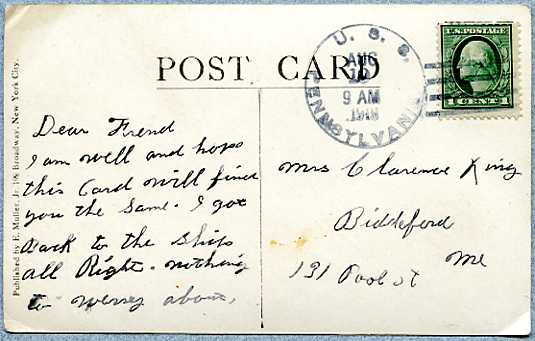 POST CARD
U. S. S.
PENNSYLVANIA
AUG
9 AM
U.S. POSTAGE
1 CENT 1
Published by E. Muller, Jr. 198 Broadway, New York City.
Dear Frend
I am well and hope
this Card will fined
you the Same. I got
Back to the Ship
all Right. nothing
to werrey about,
Mrs Clarence King
Biddeford
Me
131 Pool st